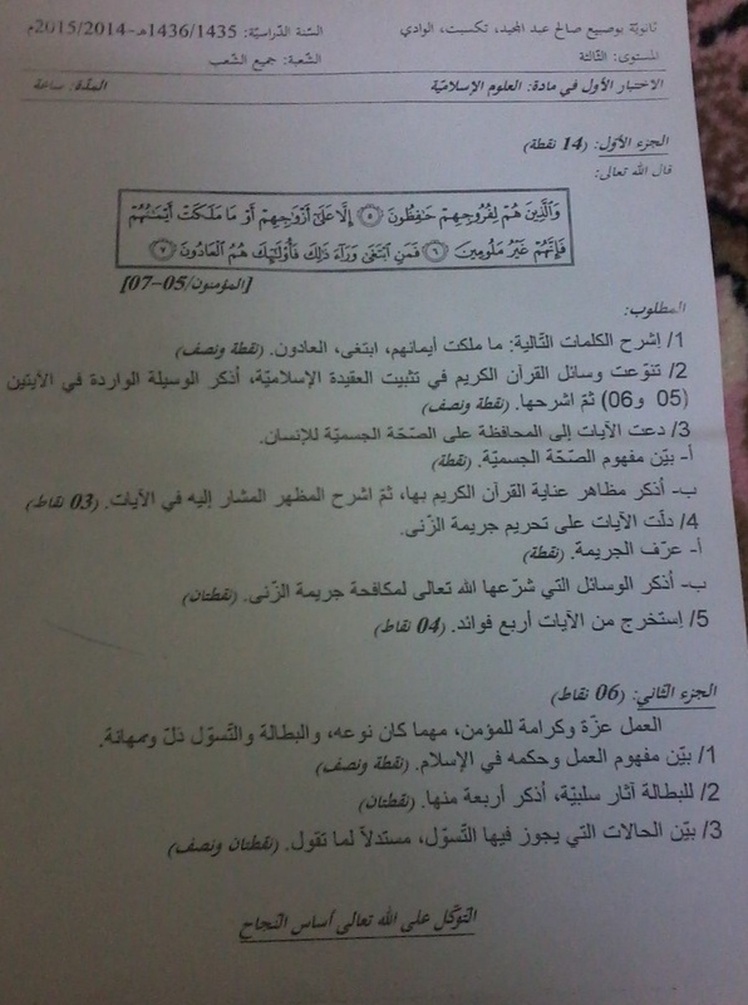 ثانوية بوصبيع صالح عبد المجيد، تكسبت، الوادي السّنة الدّراسيّة: 1436/1435هـ-2015/2014م
المستوى: الثّالثة الشّعبة: جميع الشّعب
الاختبار الأول في مادة: العلوم الإسلاميّة المدّة: ساعة
الجزء الأوّل: (14 نقطة)
قال الله تعالى:
وَالَّذِينَ هُمْ لِفُرُوجِهِمْ حَافِظُونَ ٥ إِلَّا عَلَىٰ أَزْوَاجِهِمْ أَوْ مَا مَلَكَتْ أَيْمَانُهُمْ
فَإِنَّهُمْ غَيْرُ مَلُومِينَ ٦ فَمَنِ ابْتَغَىٰ وَرَاءَ ذَٰلِكَ فَأُولَٰئِكَ هُمُ الْعَادُونَ ٧
[المؤمنون/05-07]
المطلوب:
1/ إشرح الكلمات التّالية: ما ملكت أيمانهم، ابتغى، العادون. (نقطة ونصف)
2/ تنوّعت وسائل القرآن الكريم في تثبيت العقيدة الإسلاميّة، أذكر الوسيلة الواردة في الآيتين
(05 و06) ثمّ اشرحها. (نقطة ونصف)
3/ دعت الآيات إلى المحافظة على الصّحّة الجسميّة للإنسان.
أ- بيّن مفهوم الصّحّة الجسميّة. (نقطة)
ب- أذكر مظاهر عناية القرآن الكريم بها، ثمّ اشرح المظهر المشار إليه في الآيات. (03 نقاط)
4/ دلّت الآيات على تحريم جريمة الزّنى.
أ- عرّف الجريمة. (نقطة)
ب- أذكر الوسائل التي شرّعها الله تعالى لمكافحة جريمة الزّنى. (نقطتان)
5/ إستخرج من الآيات أربع فوائد. (04 نقاط)
الجزء الثّاني: (06 نقاط)
العمل عزّة وكرامة للمؤمن، مهما كان نوعه، والبطالة والتّسوّل ذلّ ومهانة.
1/ بيّن مفهوم العمل وحكمه في الإسلام. (نقطة ونصف)
2/ للبطالة آثار سلبيّة، أذكر أربعة منها. (نقطتان)
3/ بيّن الحالات التي يجوز فيها التّسوّل، مستدلاً لما تقول. (نقطتان ونصف)
التّوكّل على الله تعالى أساس النّجاح